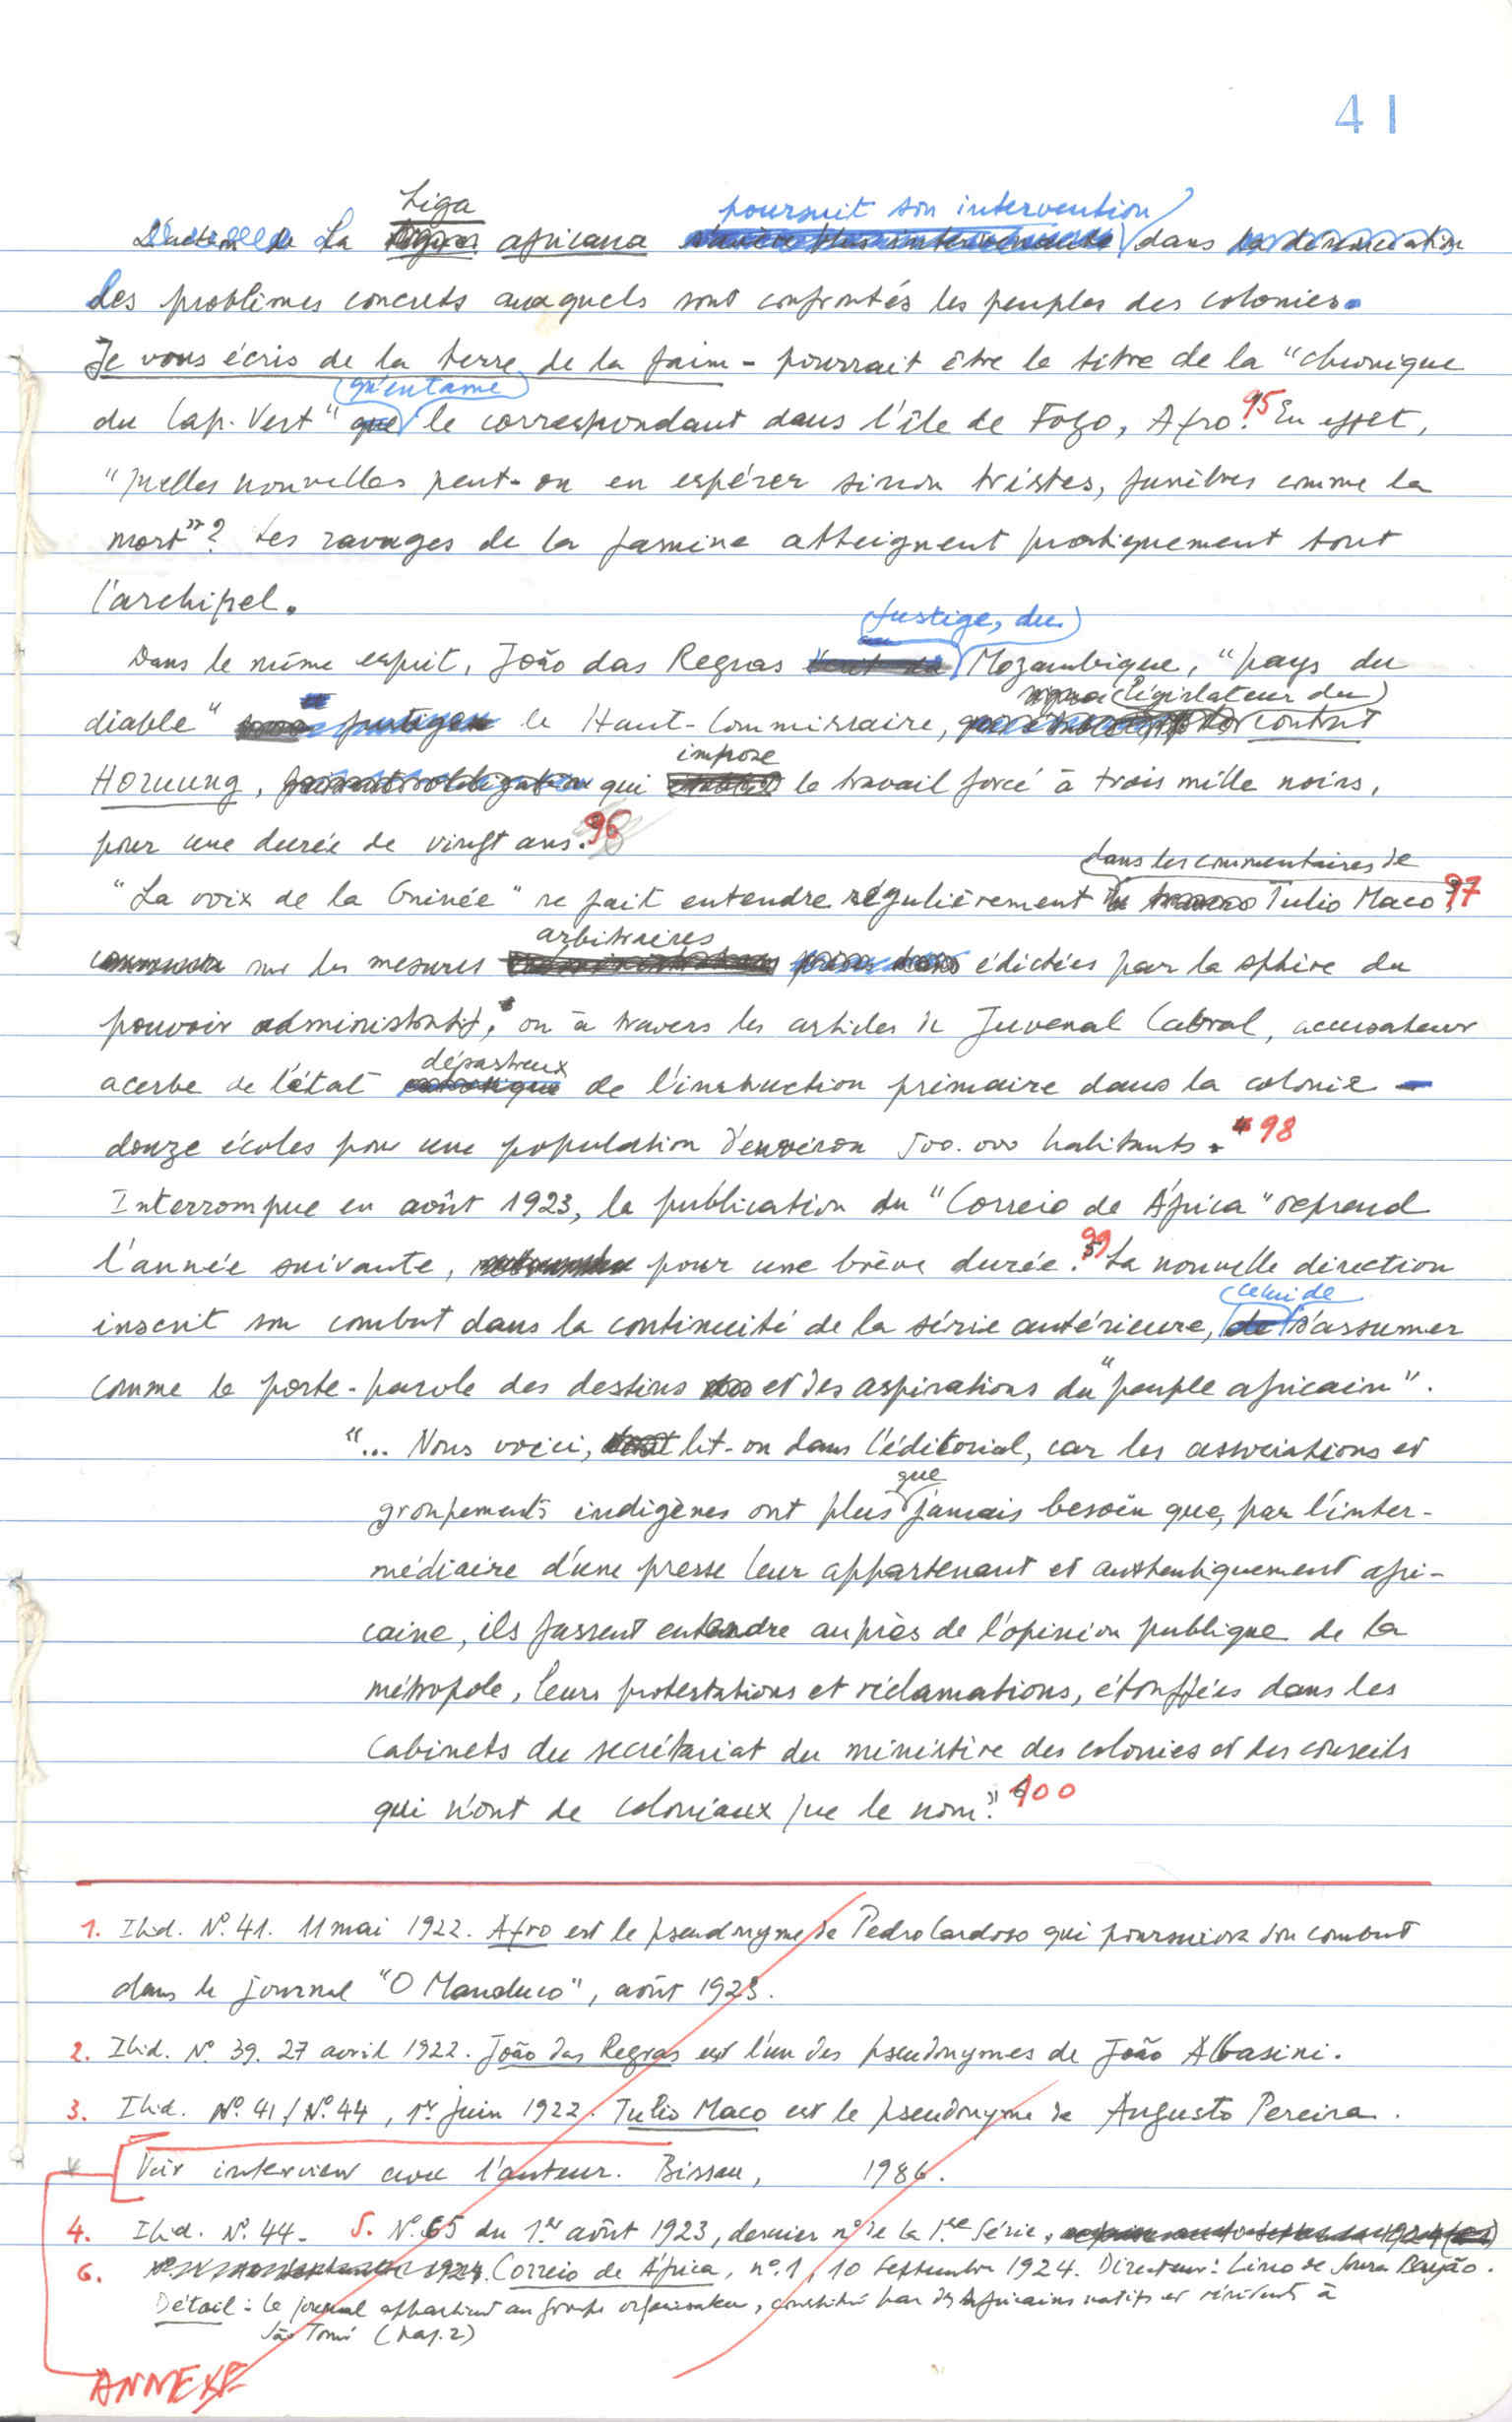 41
Liga poursuit son intervention
La africana dans
les problèmes concrets auxquels sont confrontés les peuples des colonies.
Je vous écris de la terre de la faim - pourrait être le titre de la "chronique
qu'entame
du Cap-Vert" que le correspondant dans l'île de Fogo, Afro. 95 En effet,
"quelles nouvelles peut-on en espérer sinon tristes, funèbres comme la
mort"? Les ravages de la famine atteignent pratiquement tout
l'archipel.
fustige, du
Dans le même esprit, João das Regras Mozambique, "pays du
législateur du
diable" fustige le Haut-Commissaire, contrat
impose
Hornung, qui le travail forcé à trois mille noirs,
pour une durée de vingt ans. 96
dans les commentaires de
"La voix de la Guinée" se fait entendre régulièrement Tulio Maco 97
arbitraires
sur les mesures édictées par la sphère du
pouvoir administratif, ou à travers les articles de Juvenal Cabral, accusateur
désastreux
acerbe de l'état de l'instruction primaire dans la colonie -
douze écoles pour une population d'environ 500.000 habitants. 98
Interrompue en août 1923, la publication du "Correio de África" reprend
l'année suivante, pour une brève durée. 99 La nouvelle direction
celui de
inscrit son combat dans la continuité de la série antérieure, de s'assumer
comme le porte-parole des destins et des aspirations du "peuple africain".
"... Nous voici, lit-on dans l'éditorial, car les associations et
que
groupements indigènes ont plus jamais besoin que, par l'inter-
médiaire d'une presse leur appartenant et authentiquement afri-
caine, ils fassent entendre auprès de l'opinion publique de la
métropole, leurs protestations et réclamations, étouffées dans les
cabinets du secrétariat du ministère des colonies et des conseils
qui n'ont de coloniaux que le nom". 100
1. Ibid. Nº 41. 11 mai 1922. Afro est le pseudonyme de Pedro Cardoso qui poursuivra son combat
dans le journal "O Manduco", août 1923.
2. Ibid. Nº 39. 27 avril 1922. João das Regras est l'un des pseudonymes de João Albasini.
3. Ibid. Nº 41 / Nº 44, 1er juin 1922. Tulio Maco est le pseudonyme de Augusto Pereira.
* Voir interview avec l'auteur. Bissau, 1986.
4. Ibid. Nº 44. 5. Nº 65 du 1er août 1923, dernier nº de la 1ère Série.
6. 1924. Correio de África, nº 1, 10 Septembre 1924. Directeur:
Détail: le journal appartient au groupe organisateur, constitué par des Africains natifs et résidents à
São Tomé (pag. 2)
ANNEXE